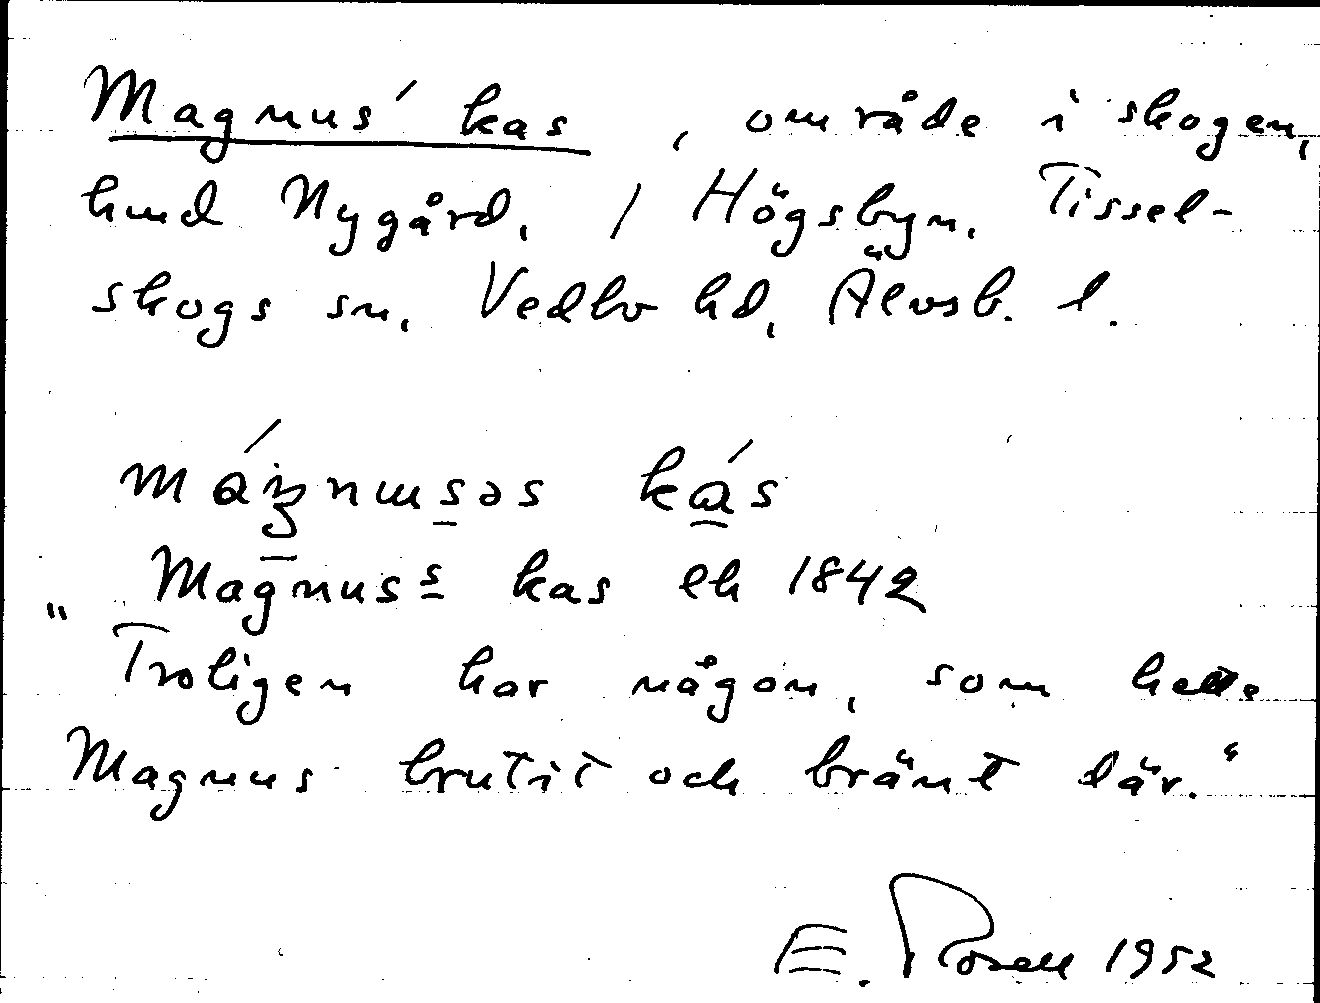 Magnus' kas, område i skogen,
hmd Nygård, / Högsbyn. Tissel-
skogs sn, Vedbo hd, Älvsb. l.
máʒnɯsəs kás
Magnuss kas ek 1842
"Troligen har någon, som hette
Magnus brutit och bränt där."
E. Rosell 1952